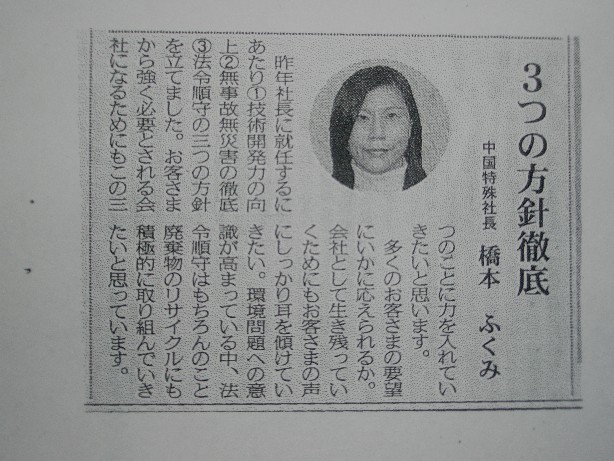 3つの方針徹底
中国特殊社長 橋本 ふくみ
昨年社長に就任するに
あたり①技術開発力の向
上②無事故無災害の徹底
③法令順守の三つの方針
を立てました。お客さま
から強く必要とされる会
社になるためにもこの三
つのことに力を入れてい
きたいと思います。
多くのお客さまの要望
にいかに応えられるか。
会社として生き残ってい
くためにもお客さまの声
にしっかり耳を傾けてい
きたい。環境問題への意
識が高まっている中、法
令順守はもちろんのこと
廃棄物のリサイクルにも
積極的に取り組んでいき
たいと思っています。